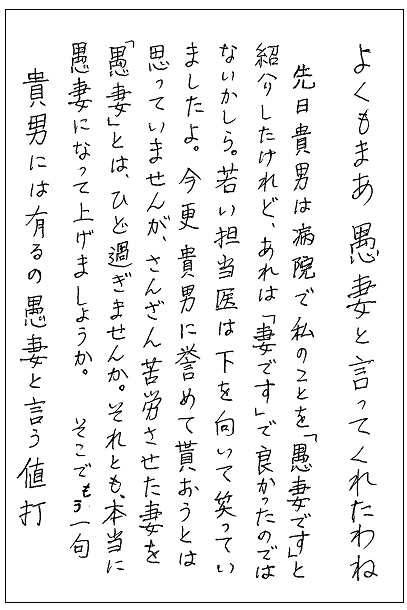 よくもまあ 愚妻と言ってくれたわね
先日貴男は病院で私のことを「愚妻です」と
紹介したけれど、あれは「妻です」で良かったのでは
ないかしら。若い担当医は下を向いて笑ってい
ましたよ。今更貴男に誉めて貰おうとは
思っていませんが、さんざん苦労させた妻を
「愚妻」とは、ひど過ぎませんか。それとも、本当に
愚妻になって上げましょうか。 そこでもう一句
貴男には有るの愚妻と言う値打